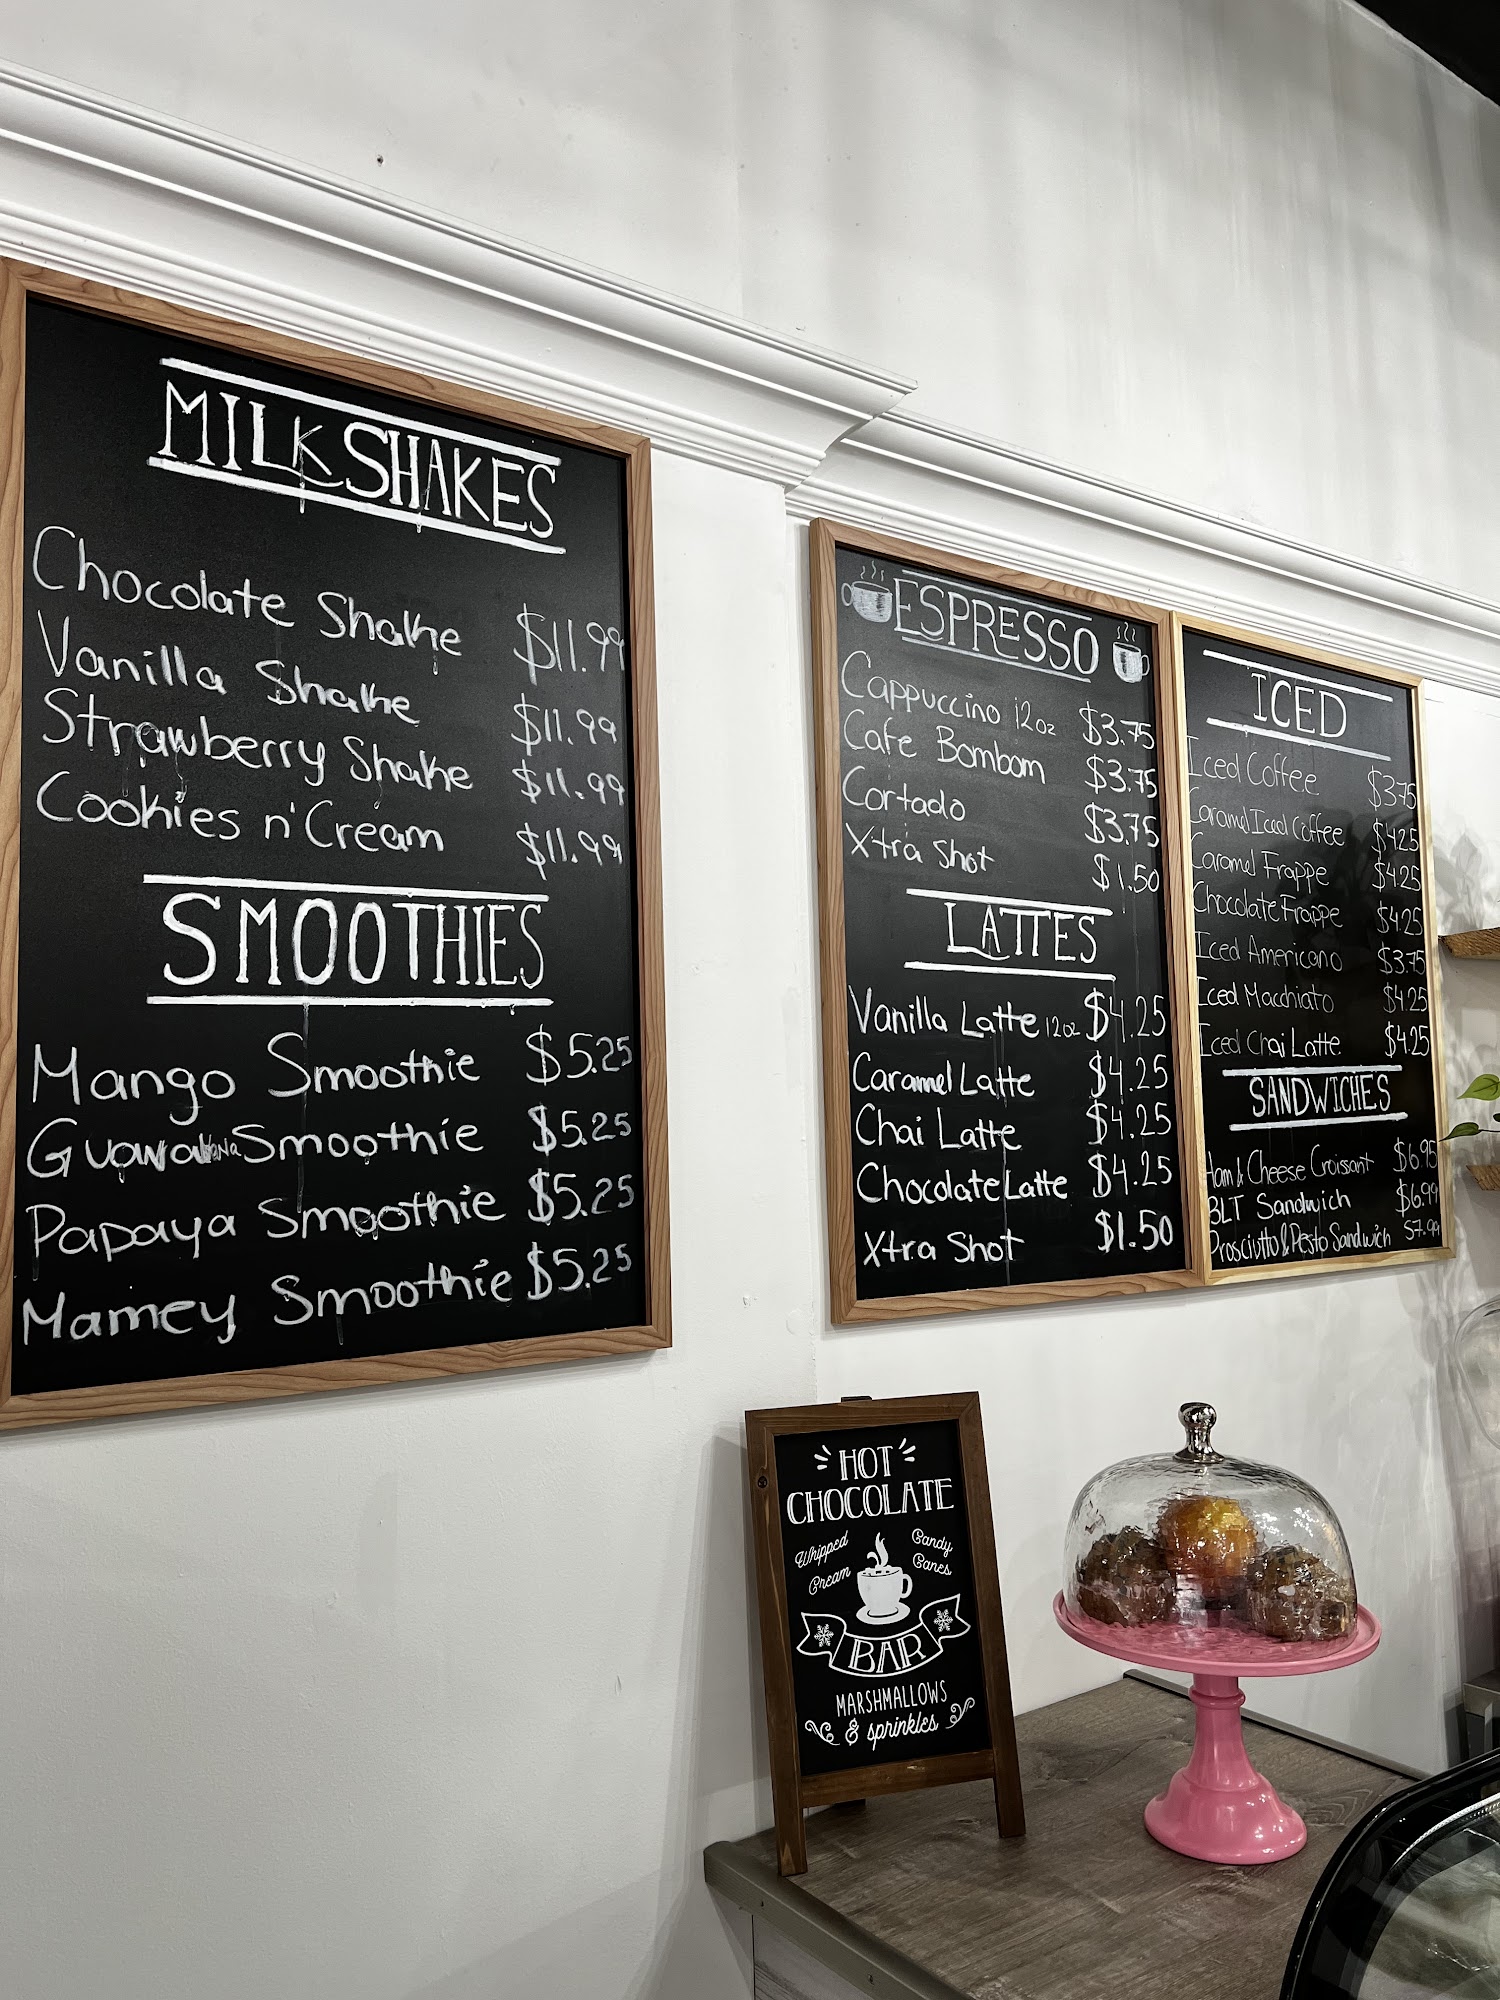 MILKSHAKES
Chocolate Shake $11.99
Vanilla Shake $11.99
Strawberry Shake $11.99
Cookies n' Cream $11.99
SMOOTHIES
Mango Smoothie $5.25
Smoothie $5.25
Papaya Smoothie $5.25
Mamey Smoothie $5.25
ESPRESSO
Cappuccino 12oz $3.75
Cafe Bombom $3.75
Cortado $3.75
Xtra shot $1.50
LATTES
Vanilla Latte 12oz $4.25
Caramel Latte $4.25
Chai Latte $4.25
Chocolate Latte $4.25
Xtra Shot $1.50
ICED
Iced Coffee $3.75
Caramel Iced Coffee $4.25
Caramel Frappe $4.25
Chocolate Frappe $4.25
Iced Americano $3.75
Iced Macchiato $4.25
Iced Chai Latte $4.25
SANDWICHES
Ham & Cheese Croissant $6.95
BLT Sandwich $6.99
Prosciutto & Pesto Sandwich $7.99
HOT
CHOCOLATE
Whipped Cream
Candy Canes
BAR
MARSHMALLOWS
& sprinkles